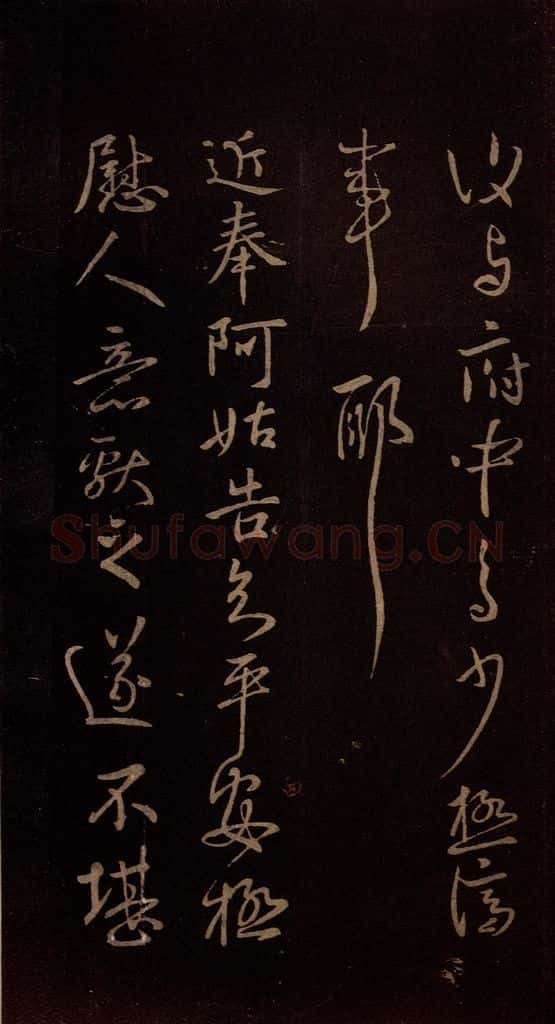 與府中少極濟
事耶
近奉阿姑告知平安極
慰人意獻之遂不堪
Shufawang.CN